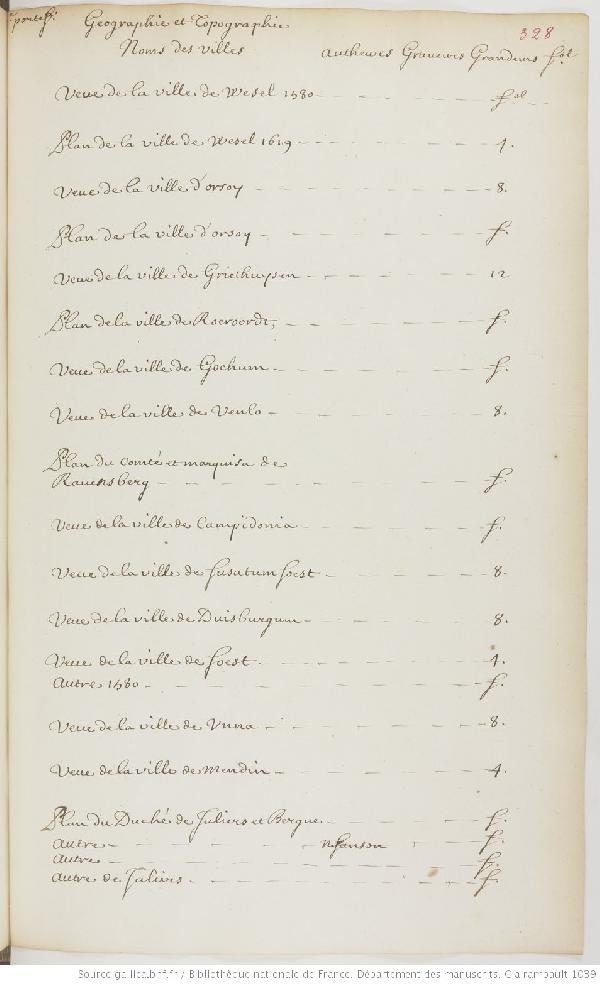 Geographie et Topographie
328
Noms des villes Autheures Graueures Grandeurs fol
Veue de la ville de Wesel 1580 fol
Plan de la ville de Wesel 1619 4.
Veue de la ville d'orsoy 8.
Plan de la ville d'orsoy f.
Veue de la ville de Griethuysen 12
Plan de la ville de Roeroordt f.
Veue de la ville de Gochum f.
Veue de la ville de Venlo 8.
Plan du comté et marquisa de
Rauensberg f.
Veue de la ville de Campidonia f.
Veue de la ville de Susatum soest 8.
Veue de la ville de Duisburgum 8.
Veue de la ville de Soest 4.
Autre 1580 f.
Veue de la ville de Vnna 8.
Veue de la ville de Mendin 4.
Plan du Duché de Juliers et Bergue f.
Autre N Sanson f.
Autre f.
Autre de Juliers f.
Source gallica.bnf.fr / Bibliothèque nationale de France. Département des manuscrits. Clairambault 1039